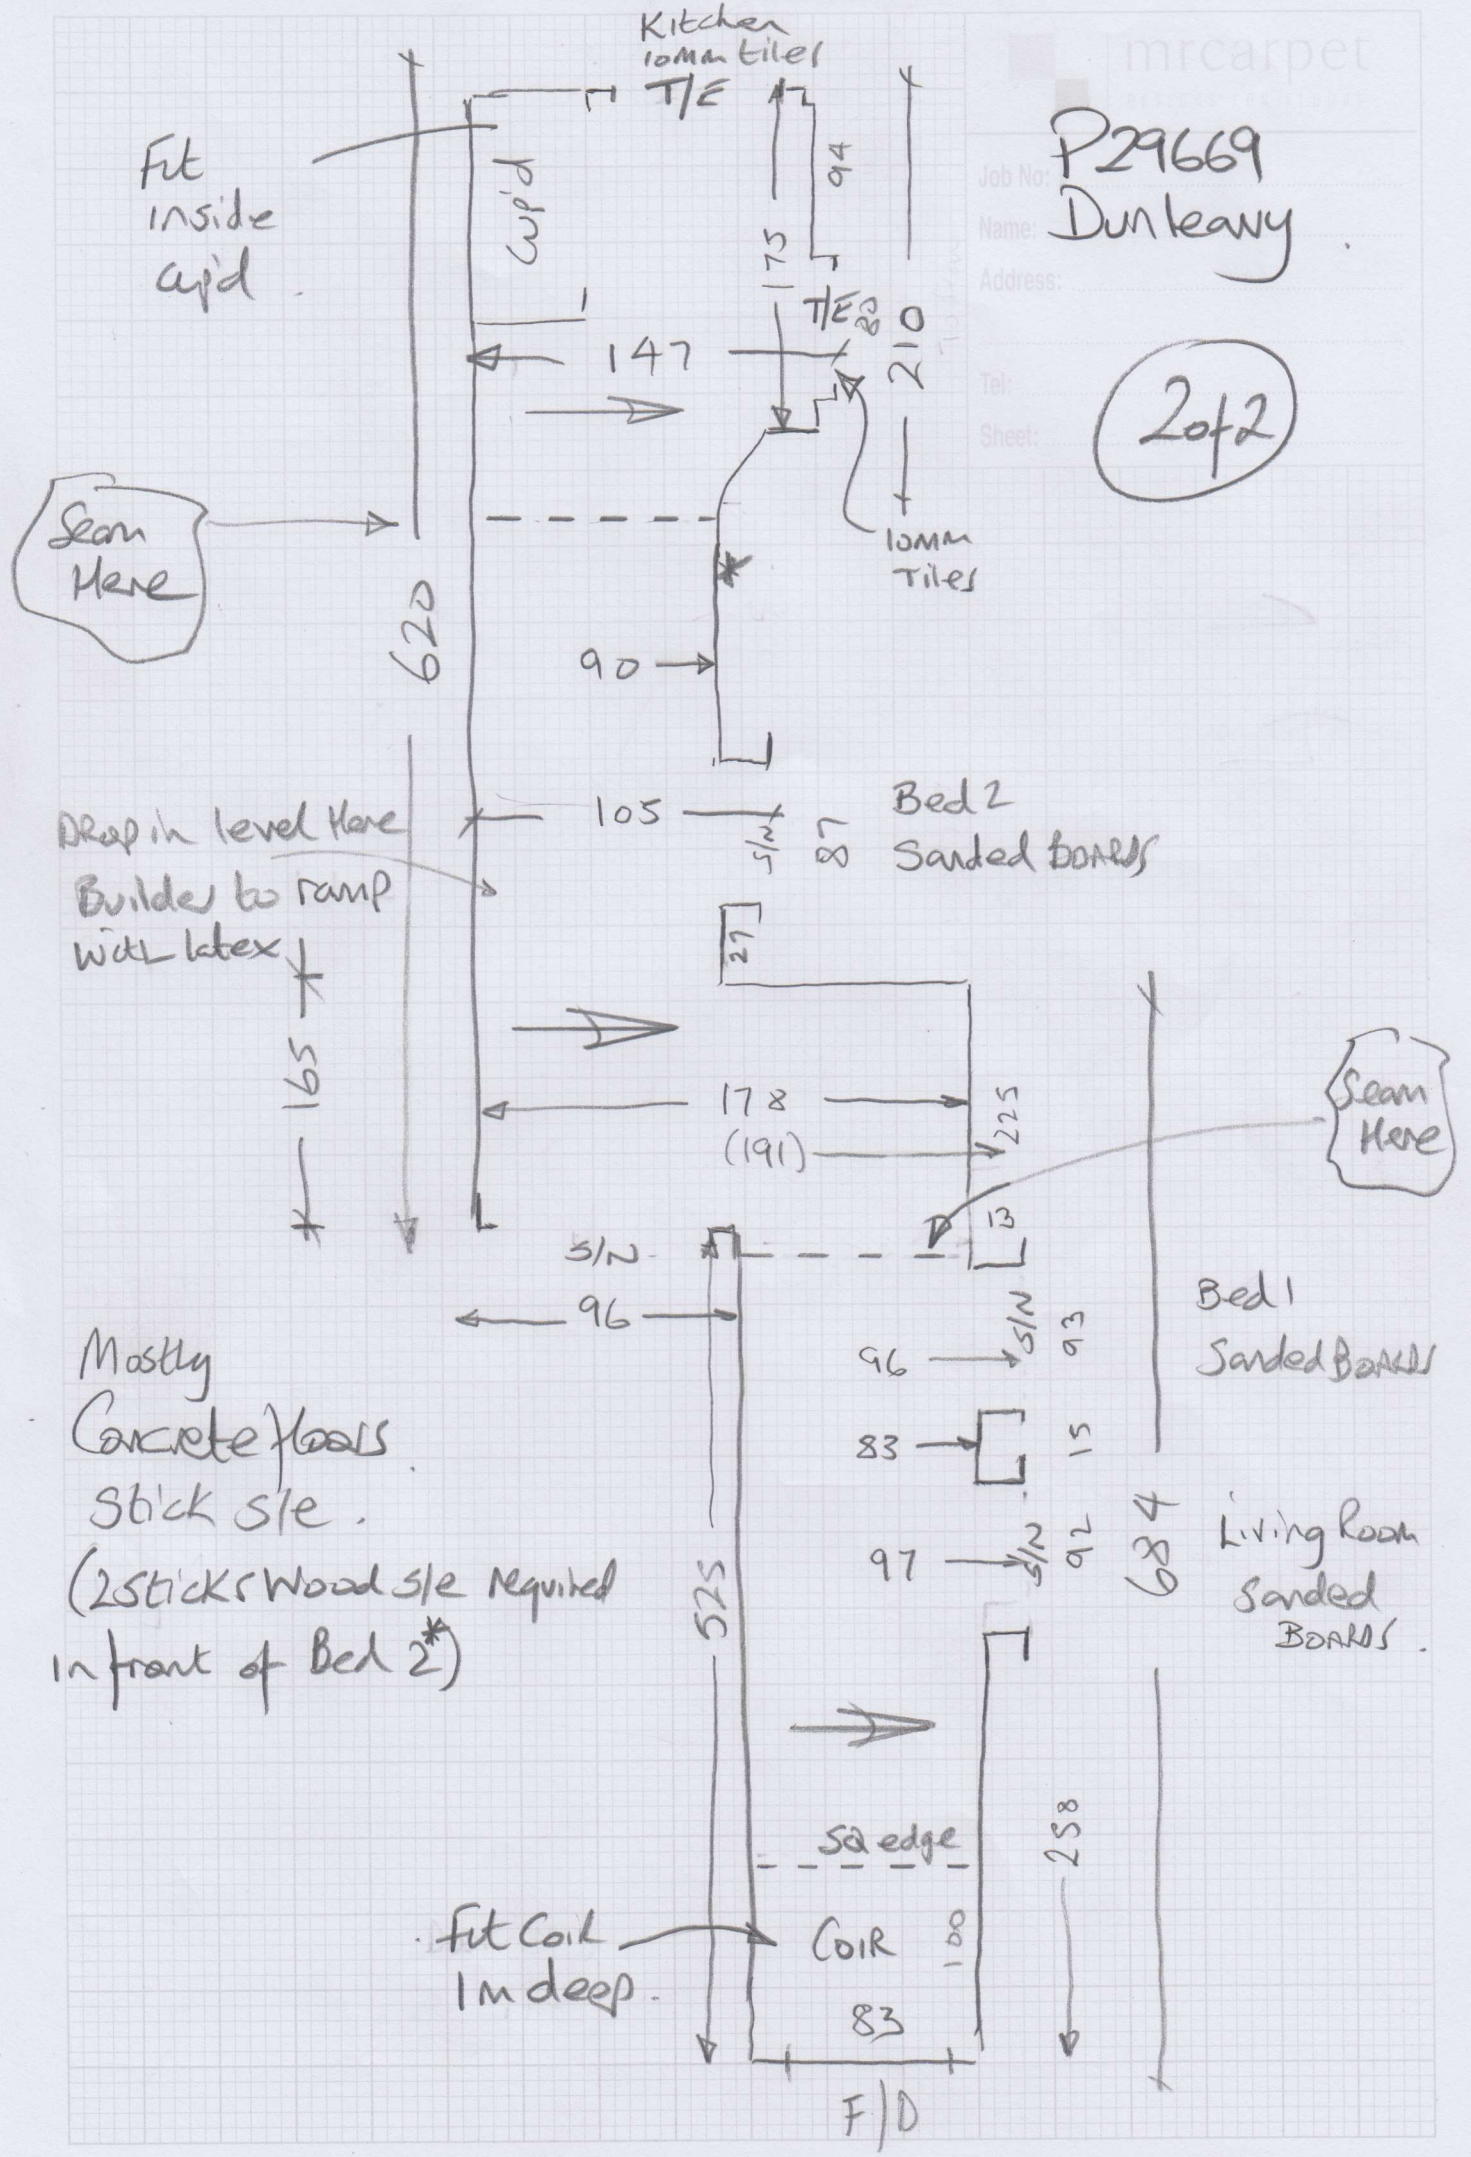 Kitchen
10mm tiles
T/E
mrcarpet
P29669
Job No:
Dunleavy
Name:
Address:
Tel:
Sheet:
2 of 2
Fit
inside
cup'd.
Cup'd
94
175
T/E 80
210
147
10mm
Tiles
Seam
Here
620
90
105
S/N
87
Bed 2
Sanded BOARDS
Drop in level Here
Builder to ramp
With latex
27
165
178
(191)
225
Seam
Here
13
S/N
96
S/N
93
96
Bed 1
Sanded BOARDS
83
15
97
S/N
92
684
Living Room
Sanded
BOARDS.
525
Mostly
Concrete floors
Stick s/e.
(2 sticks Wood s/e required
in front of Bed 2*)
*
SQ edge
258
Fit Coir
1m deep.
COIR
100
83
F/D